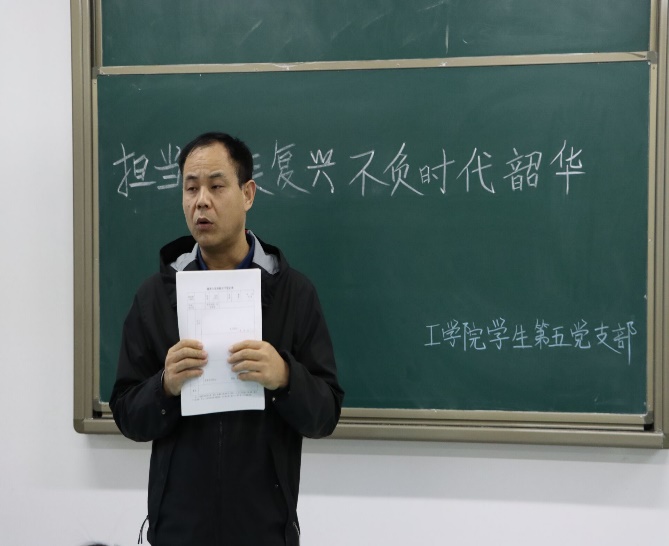 担当复兴不负时代韶华
工学院学生第五党支部